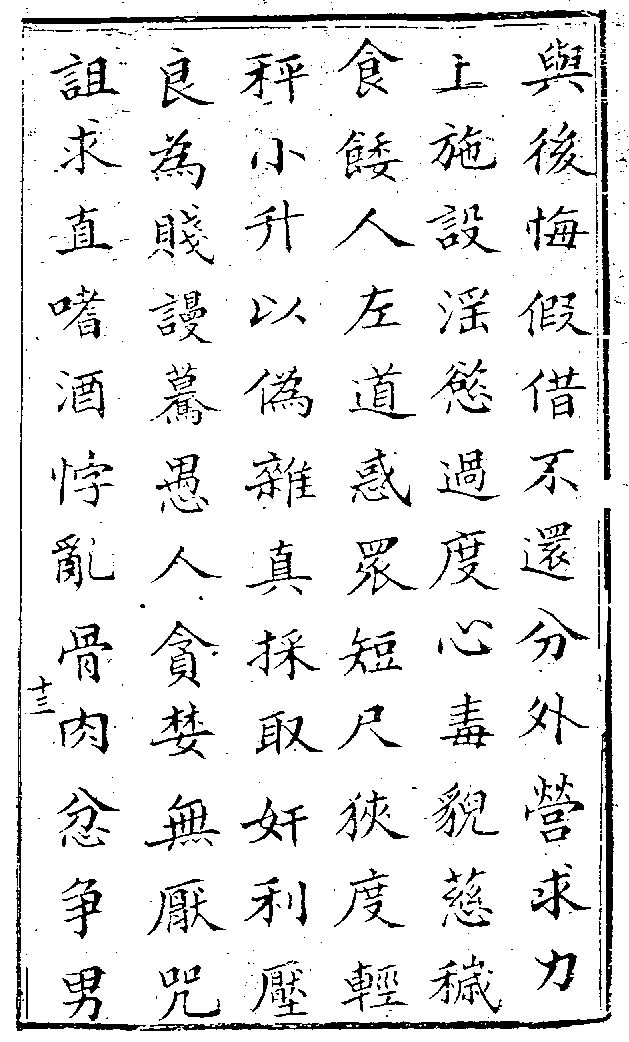 與後悔假借不還分外營求力
上施設淫慾過度心毒貌慈穢
食餧人左道惑眾短尺狹度輕
秤小升以偽雜真採取奸利壓
良為賤謾驀愚人貪婪無厭咒
詛求直嗜酒悖亂骨肉忿爭男
十三